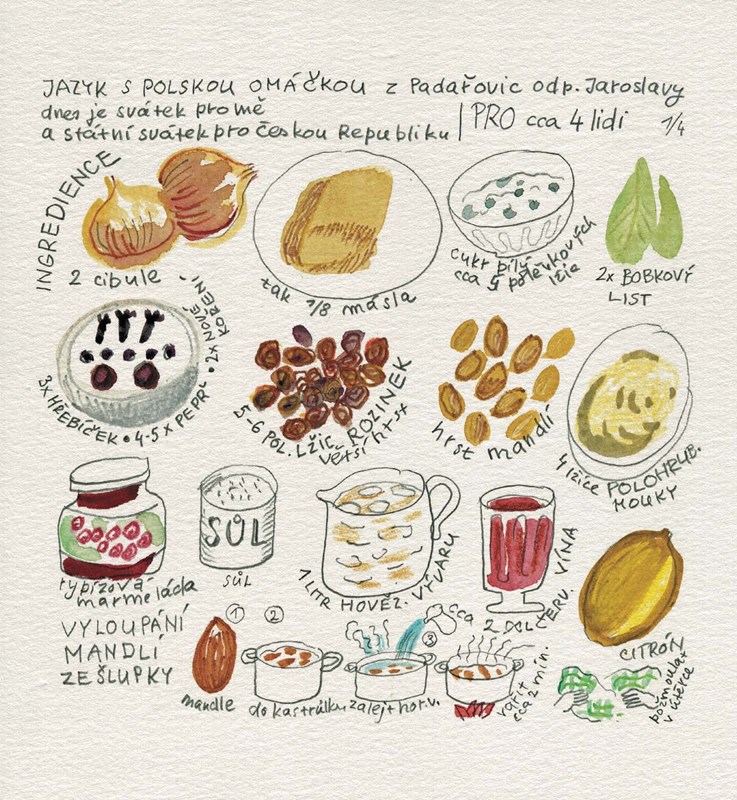 JAZYK S POLSKOU OMÁČKOU z Padařovic odp. Jaroslavy
dnes je svátek pro mě
a státní svátek pro Českou Republiku
PRO cca 4 lidi
1/4
INGREDIENCE
2 cibule
tak 1/8 másla
cukr bílý
cca 5 polévkových
lžic
2x BOBKOVÝ
LIST
3x HŘEBÍČEK • 4-5 x PEPŘ • 2x NOVÉ
KOŘENÍ
5-6 POL. LŽIC ROZINEK
větší hrst
hrst mandlí
4 lžíce POLOHRUB.
MOUKY
rybízová
marmeláda
SŮL
sůl
1 LITR HOVĚZ. VÝVARU
cca 2 DCL ČERV. VÍNA
CITRÓN
VYLOUPÁNÍ
MANDLÍ
ZE ŠLUPKY
1
2
3
mandle
do kastrůlku
zalejt hor. v.
vařit
cca 2 min.
požmoulat
v utěrce